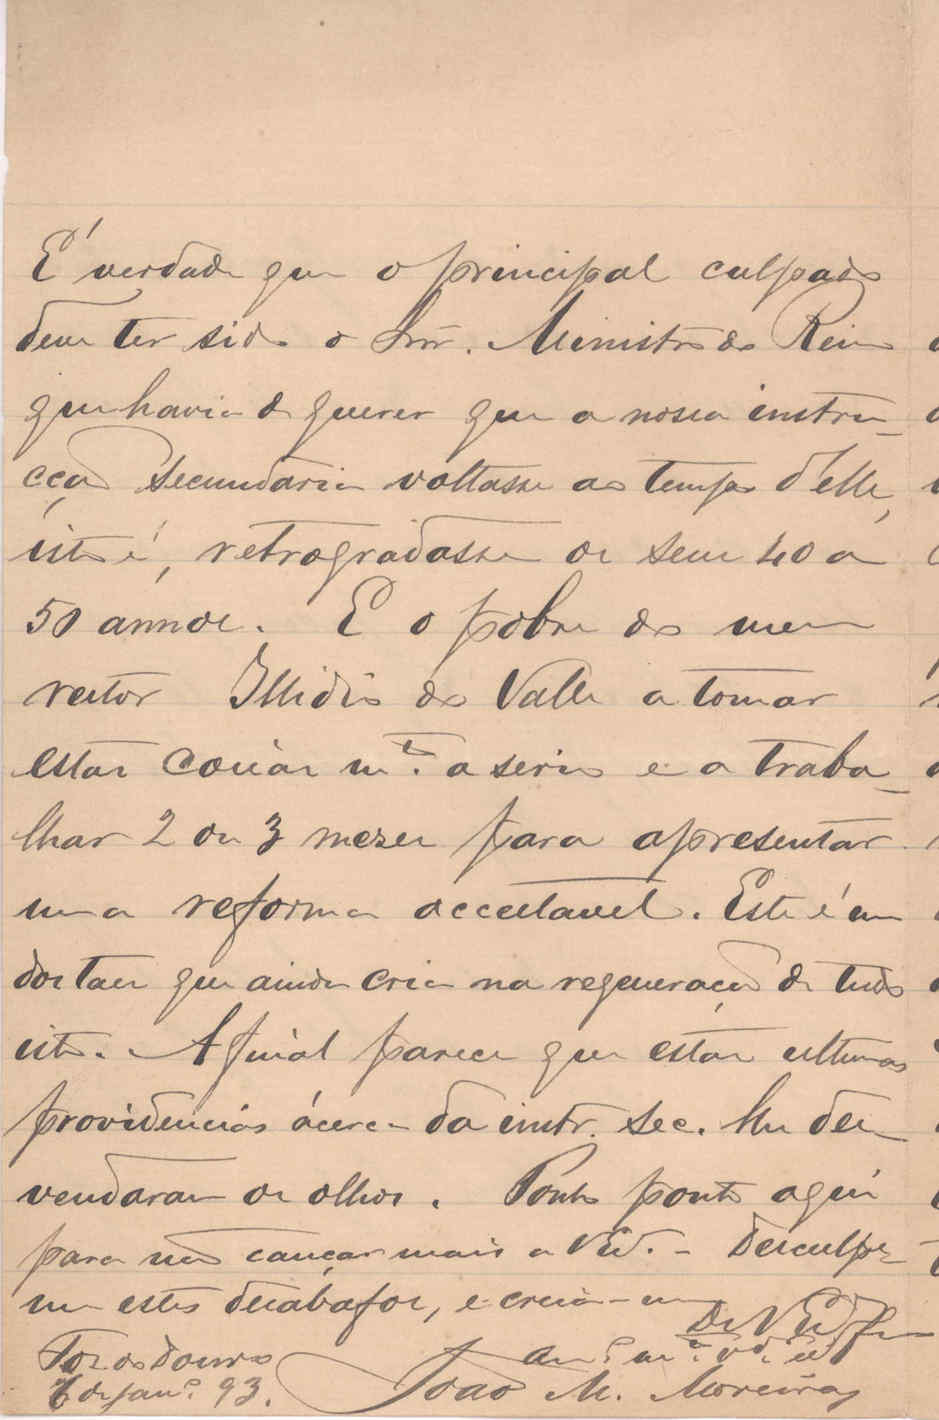 É verdade que o principal culpado
deve ter sido o Snr. Ministro do Reino
que havia de querer que a nossa instru-
cção secundaria voltasse ao tempo d'elle,
isto é, retrogradasse os seus 40 a
50 annos. E o pobre do meu
reitor Illidio do Valle a tomar
estas cousas m.to a serio e a traba-
lhar 2 ou 3 mezes para apresentar
uma reforma acceitavel. Este é um
dos taes que ainda cria na regeneração de tudo
isto. Afinal parece que estas ultimas
providencias ácerca da instr. sec. lhe des-
vendaram os olhos. Ponto ponto aqui
para não cançar mais a V. Ex.ª - Desculpe-
me estes desabafos, e creia-me
De V. Ex.ª
Foz do Douro
Am.º m.to
7 de Jan.º 93.
João M. Moreira